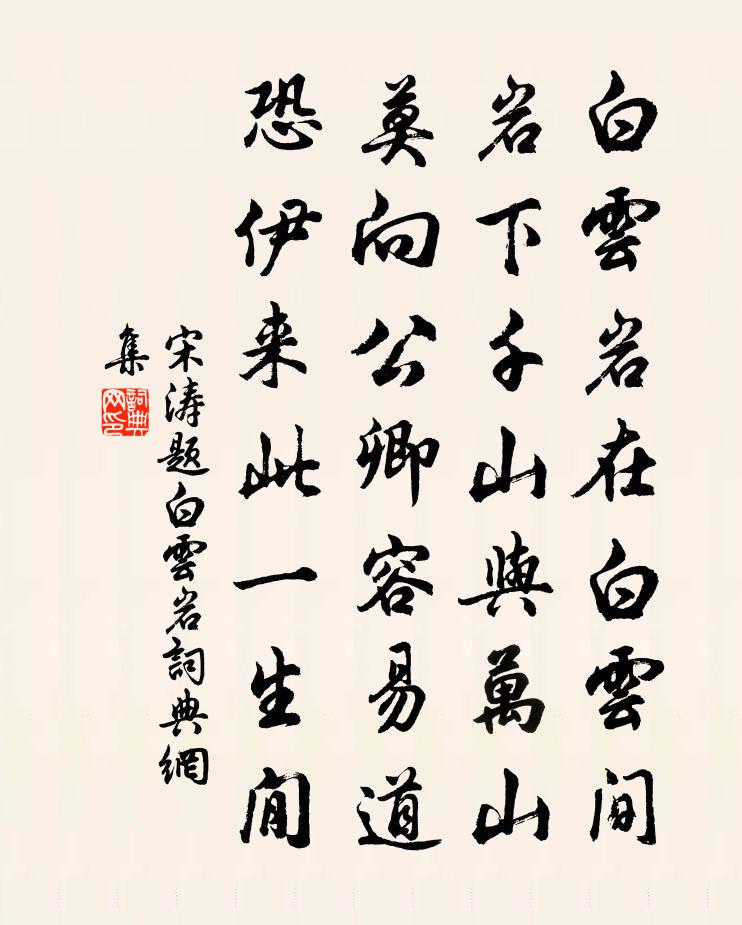 白雲岩在白雲間
岩下千山與萬山
莫向公卿容易道
恐伊来此一生閒
宋涛题白雲岩詞典網
集
詞典
网印